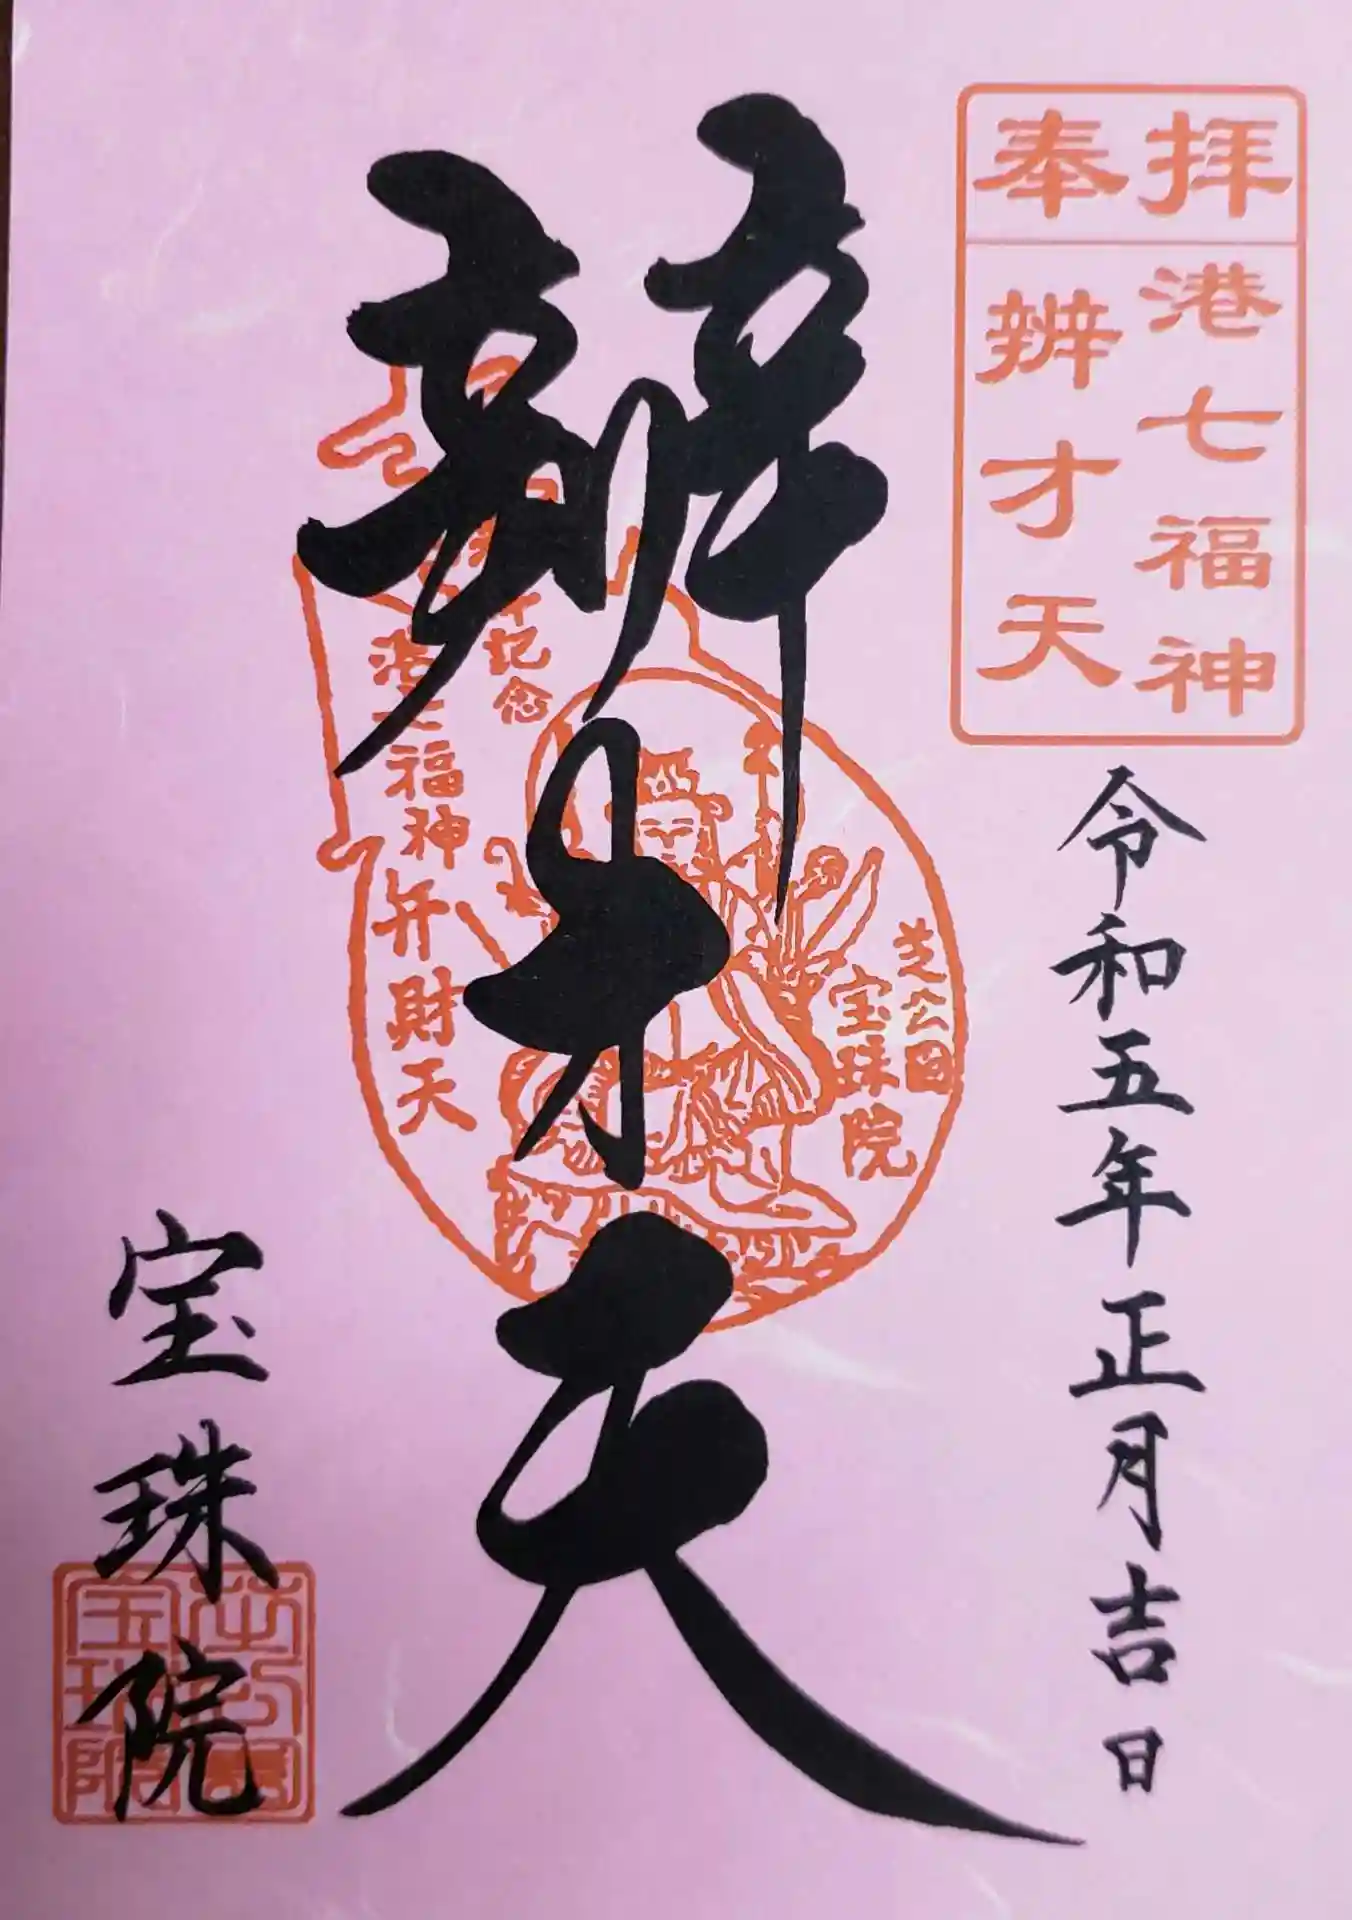 奉拝
港七福神
辨才天
令和五年正月吉日
辨才天
記念
福神弁財天
芝公園
宝珠院
宝珠院